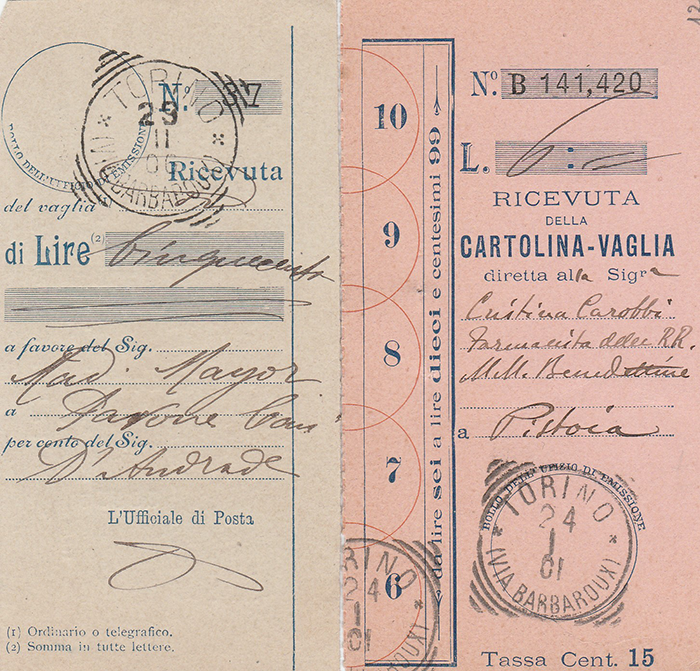 TORINO
25
11
00
(VIA BARBAROUX)
BOLLO DELL'UFFIZIO DI EMISSIONE
N.º 37
Ricevuta
del vaglia (1)
di Lire (2) Cinquecento
a favore del Sig.
Mad. Mayor
a Pavone Can
per conto del Sig.
D'Andrade
L'Ufficiale di Posta
(1) Ordinario o telegrafico.
(2) Somma in tutte lettere.
10
9
8
7
6
da lire sei a lire dieci e centesimi 99
RINO
24
1
01
BAROUX)
12
N.º B 141,420
L. 6 : =
RICEVUTA
DELLA
CARTOLINA-VAGLIA
diretta alla Sigra
Cristina Carobbi
Farmacista delle RR.
MM. Benedettine
a Pistoia
BOLLO DELL'UFIZIO DI EMISSIONE
TORINO
24
1
01
(VIA BARBAROUX)
Tassa Cent. 15